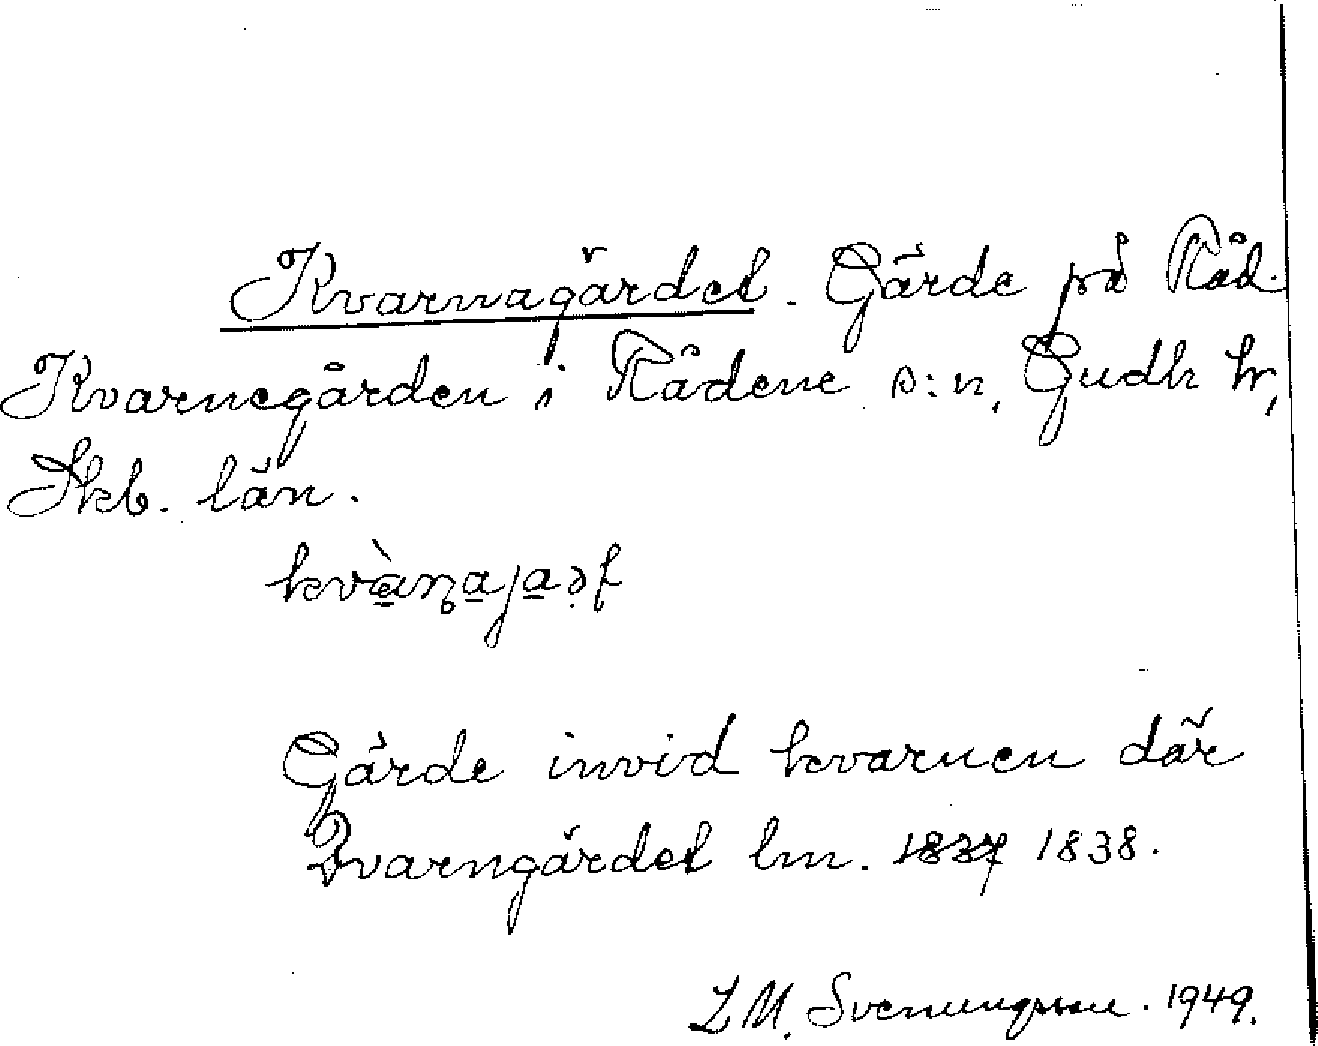 Kvarnagärdet. Gärde på Råd.
Kvarnegården i Rådene s:n, Gudh hr,
Skb. län.
kvàṇaja
Gärde invid kvarnen där
Qvarngärdet lm. 1837 1838.
L M. Svenungsson. 1949.